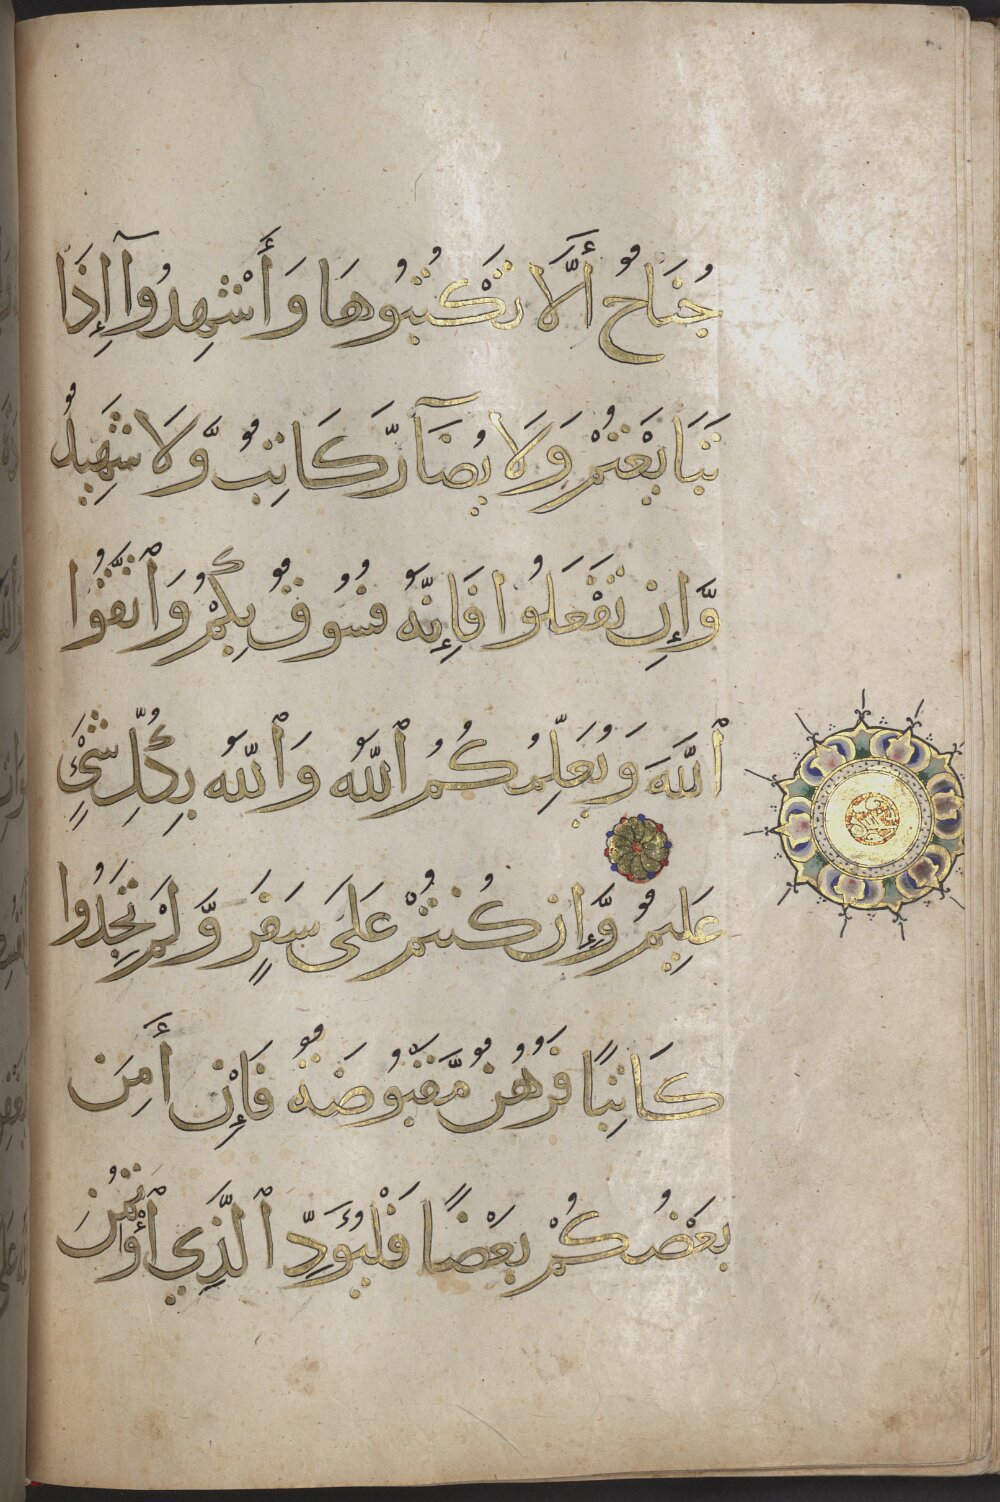 جُنَاحٌ أَلَّا تَكْتُبُوهَا وَأَشْهِدُوٓا إِذَا
تَبَايَعْتُمْ وَلَا يُضَآرَّ كَاتِبٌ وَّلَا شَهِيدٌ
وَّإِن تَفْعَلُوا فَإِنَّهُ فُسُوقٌ بِكُمْ وَٱتَّقُوا
ٱللَّهَ وَيُعَلِّمُكُمُ ٱللَّهُ وَٱللَّهُ بِكُلِّ شَيْءٍ
عَلِيمٌ وَّإِن كُنتُمْ عَلَىٰ سَفَرٍ وَّلَمْ تَجِدُوا
كَاتِبًا فَرُهُنٌ مَّقْبُوضَةٌ فَإِنْ أَمِنَ
بَعْضُكُمْ بَعْضًا فَلْيُؤَدِّ ٱلَّذِي ٱؤْتُمِنَ